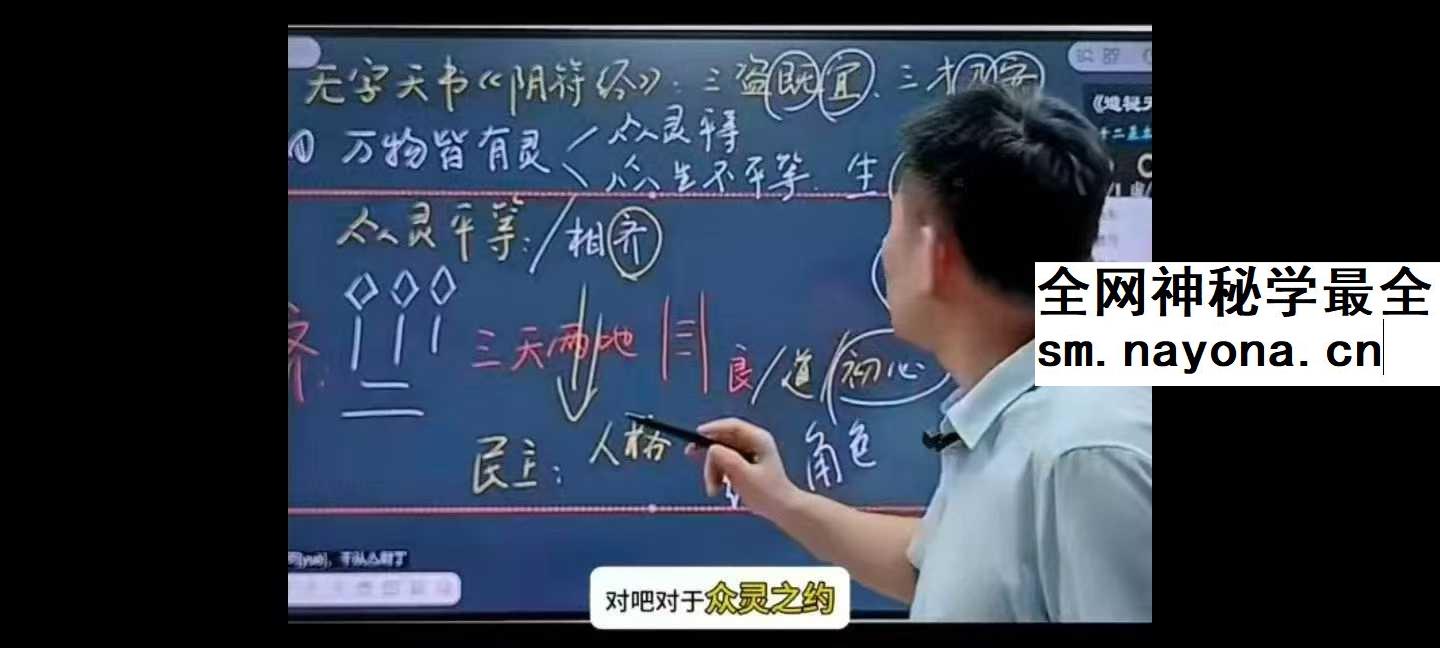 无字天书《阴符经》：三盗既宜、三才
① 万物皆有灵
众灵平等
众生不平等．生
众灵平等：/相齐
齐：
三天两地
良/道/初心
民主：人格
角色
全网神秘学最全
sm.nayona.cn
对吧对于众灵之约